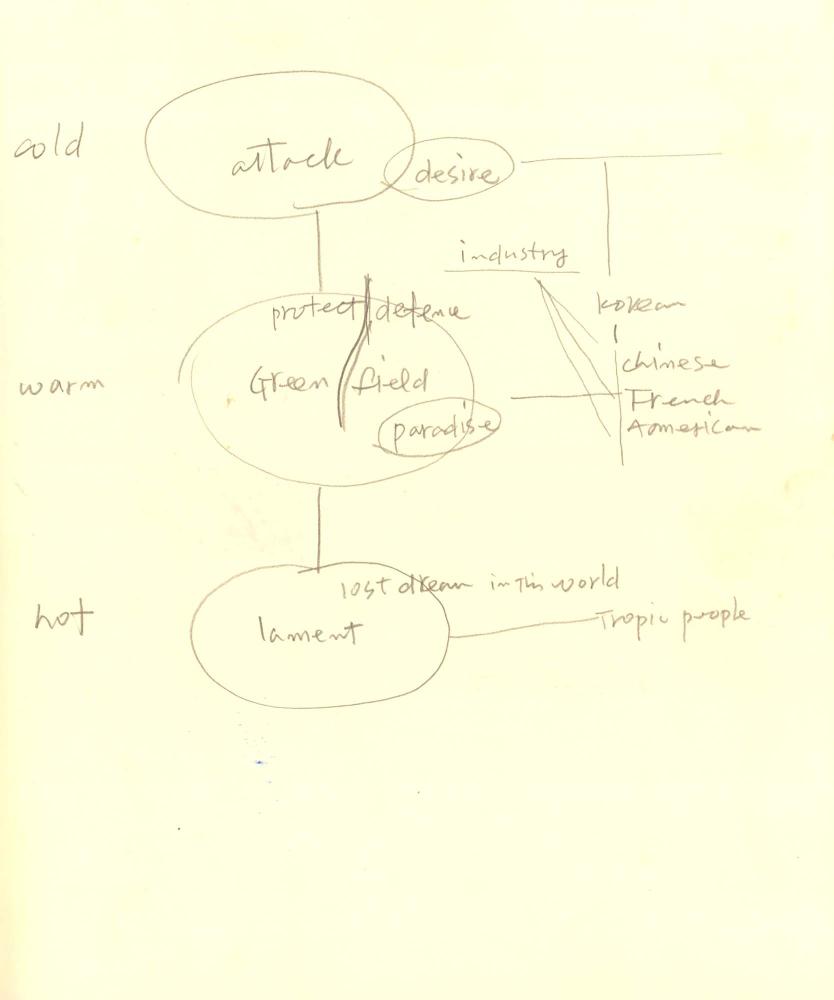 cold
attack
desire
industry
korean
protect defence
warm
Green field
chinese
French
paradise
American
lost dream in This world
hot
lament
Tropic people